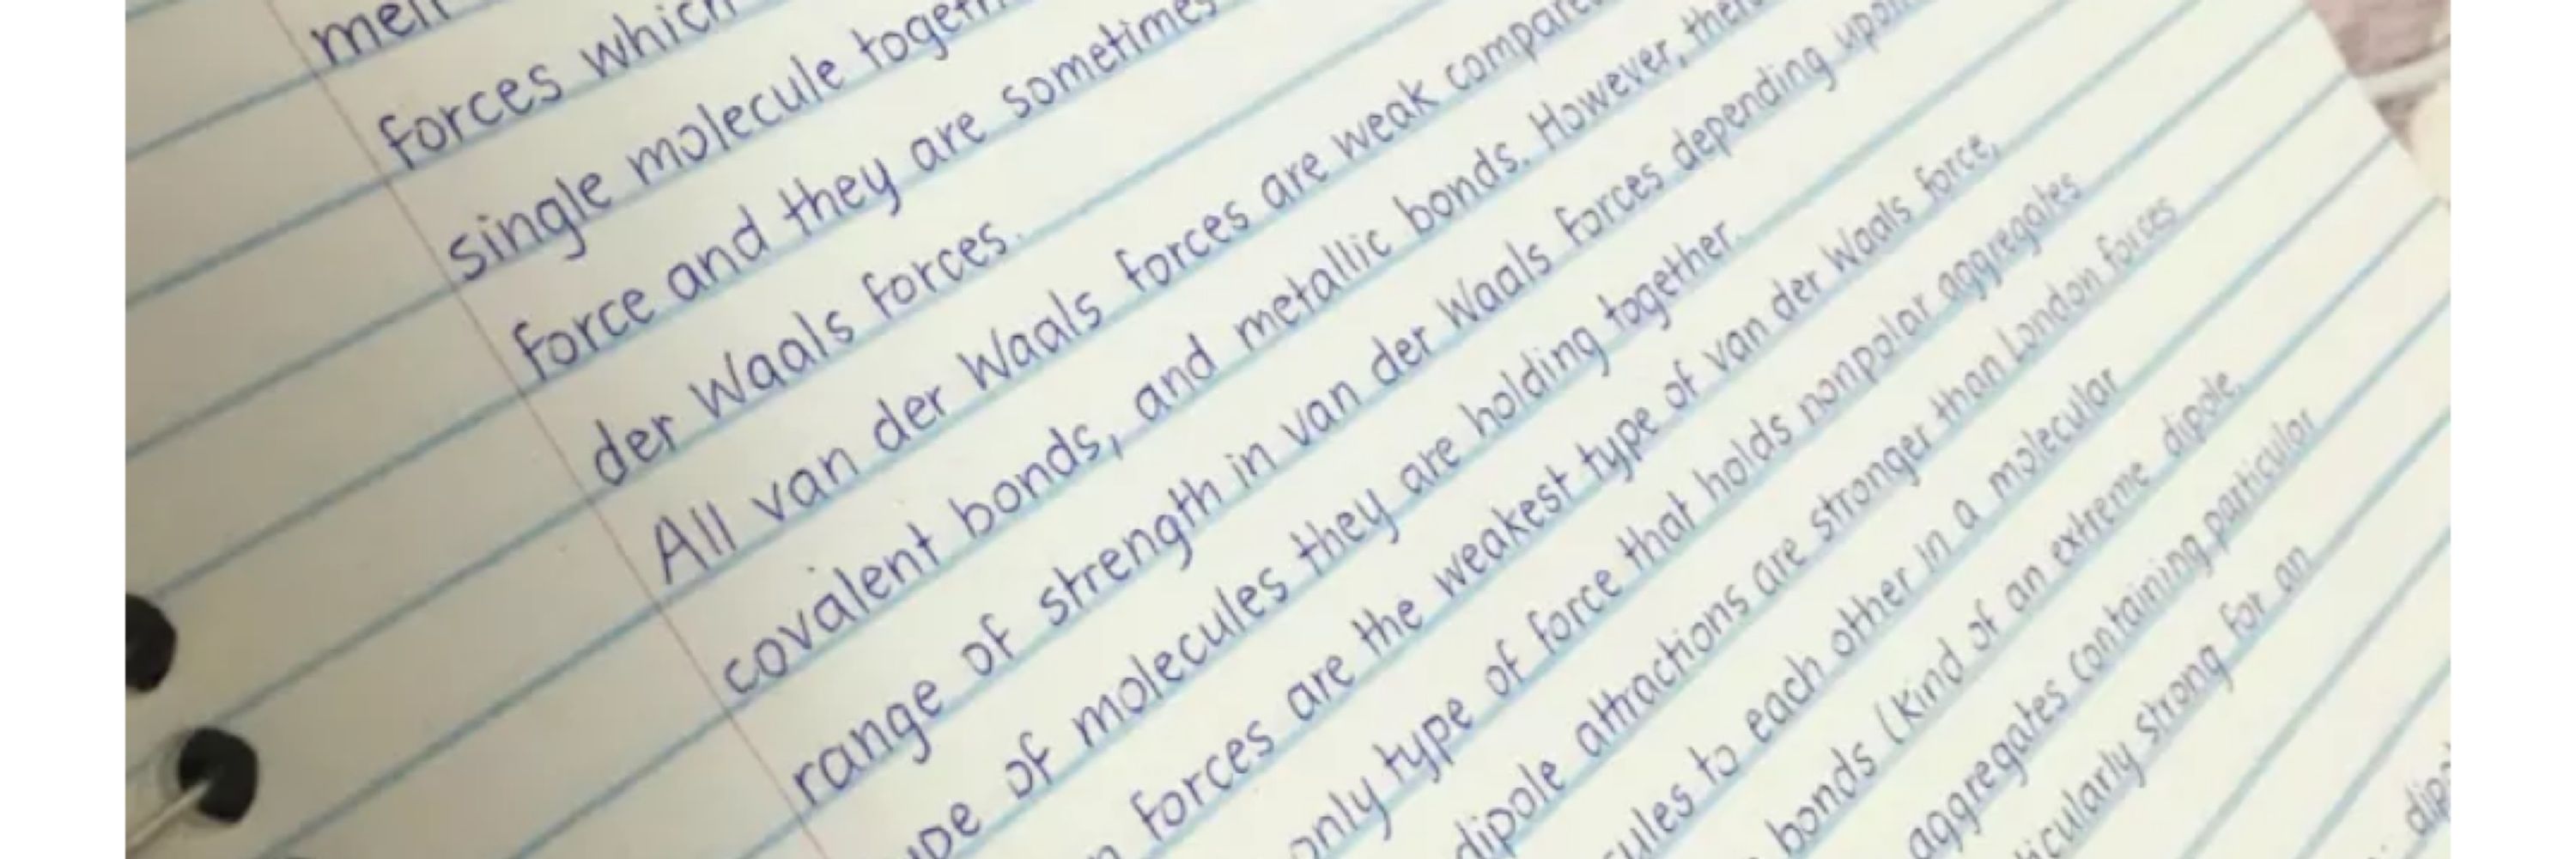 melt
forces which
single molecule together
force and they are sometimes
der Waals forces.
All van der Waals forces are weak compared
covalent bonds, and metallic bonds. However, there
range of strength in van der Waals forces depending upon
of molecules they are holding together.
forces are the weakest type of van der Waals force,
only type of force that holds nonpolar aggregates
dipole attractions are stronger than London forces
to each other in a molecular
bonds (kind of an extreme dipole.
aggregates containing particular
strong for an